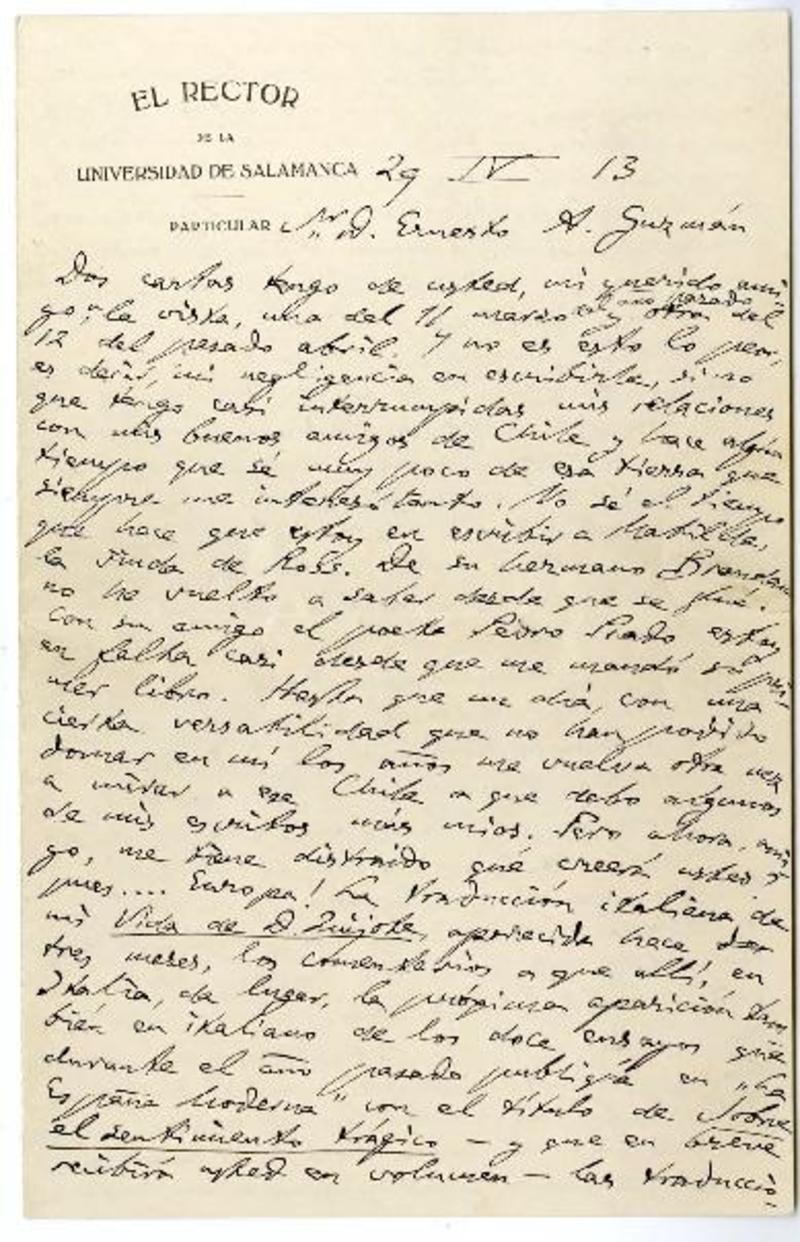 EL RECTOR
DE LA
UNIVERSIDAD DE SALAMANCA 29 IV 13
PARTICULAR Sr. D. Ernesto A. Guzmán
Dos cartas tengo de usted, mi querido ami-
go, a la vista, una del 11 marzo del año pasado y otra del
12 del pasado abril. Y no es esto lo peor,
es decir, mi negligencia en escribirle, sino
que tengo casi interrumpidas mis relaciones
con mis buenos amigos de Chile y hace algún
tiempo que sé muy poco de esa tierra que
siempre me interesó tanto. No sé el tiempo
que hace que estoy en escribir a Matilde,
la viuda de Ross. De su hermano Brandau
no he vuelto a saber desde que se fué.
Con su amigo el poeta Pedro Prado estoy
en falta casi desde que me mandó su pri-
mer libro. Hasta que un día, con una
cierta versatilidad que no han podido
domar en mí los años me vuelva otra vez
a mirar a ese Chile a que debo algunos
de mis escritos más míos. Pero ahora, ami-
go, me tiene distraido qué creerá usted?
pues.... Europa! La traducción italiana de
mi Vida de D. Quijote, aparecida hace dos
tres meses, los comentarios a que allí, en
Italia, da lugar, la próxima aparición tam
bién en italiano de los doce ensayos que
durante el año pasado publiqué en "La
España Moderna" con el título de Sobre
el sentimiento trágico — y que en breve
recibirá usted en volumen — las traduccio-